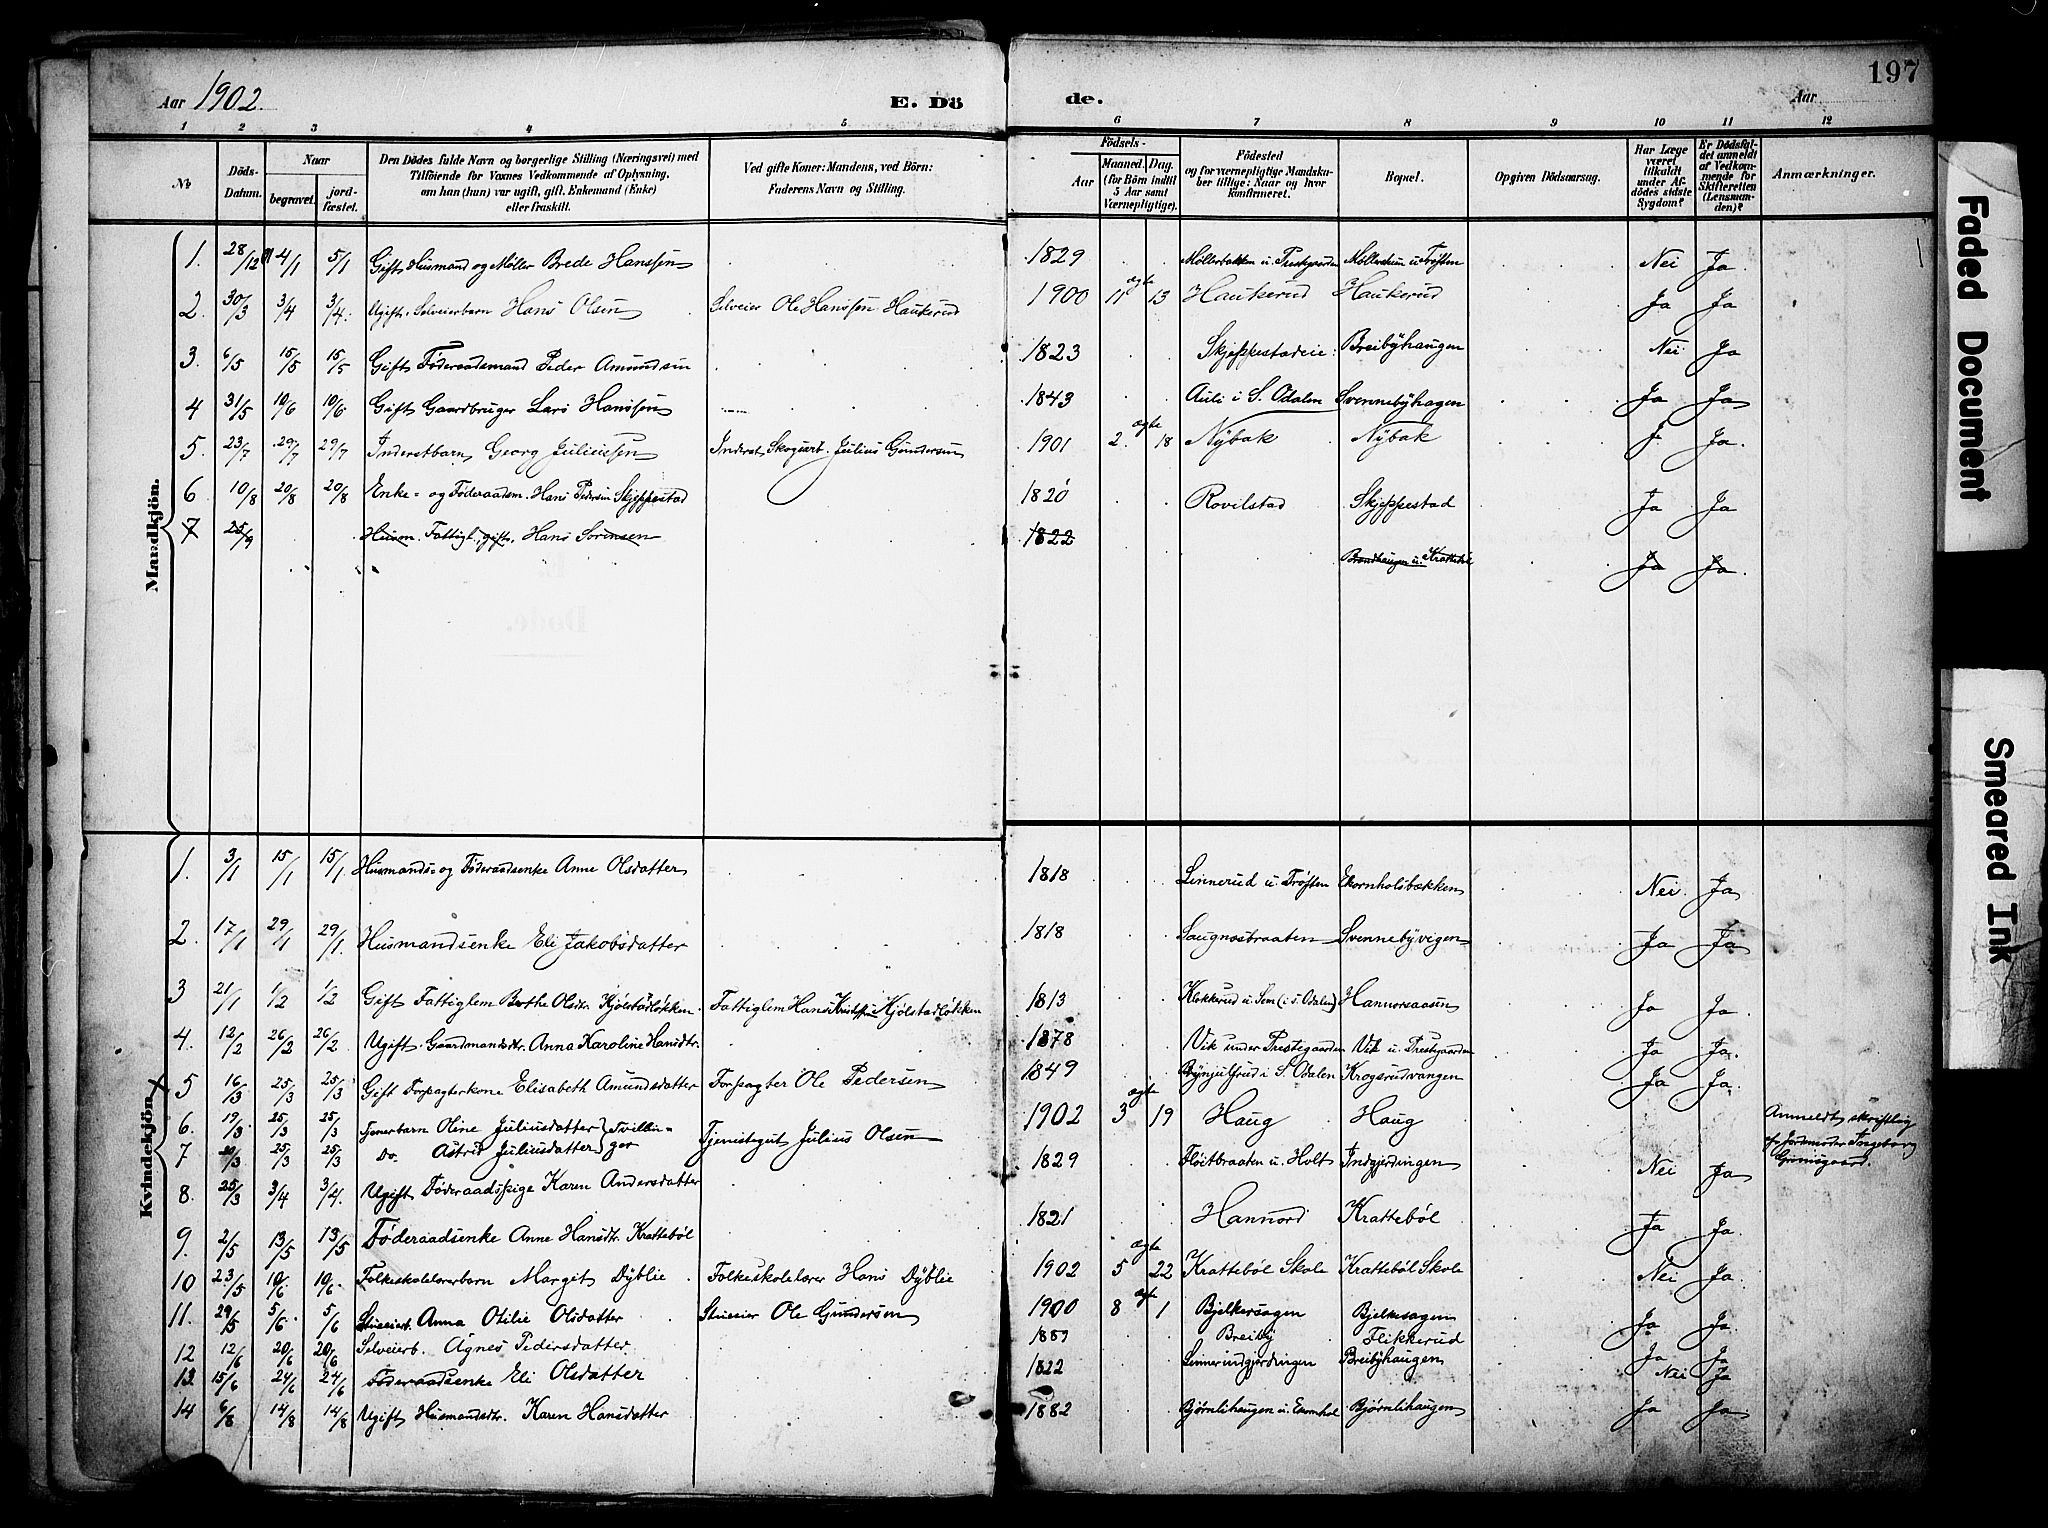 Aar 1902.
E. Dö
de.
Aar
197
1 2 3 4 5 6 7 8 9 10 11 12
No
Döds-
Datum.
Naar
begravet.
jord-
fæstet.
Den Dödes fulde Navn og borgerlige Stilling (Næringsvei) med
Tilföiende for Voxnes Vedkommende af Oplysning,
om han (hun) var ugift, gift, Enkemand (Enke)
eller fraskilt.
Ved gifte Koner: Mandens, ved Börn:
Faderens Navn og Stilling.
Födsels-
Aar
Maaned. Dag.
(for Börn indtil
5 Aar samt
Værnepligtige).
Födested
og for værnepligtige Mandskaber
ber tillige: Naar og hvor
konfirmeret.
Bopæl.
Opgiven Dödsaarsag.
Har Læge
været
tilkaldt
under Afdödes
dödes sidste
Sygdom?
Er Dödsfaldet
det anmeldt
af Vedkommende
mende for
Skifteretten
(Lensmanden)?
den)?
Anmærkninger.
Mandkjön.
1. 28/12 4/1 5/1 Gift Husmand og Møller Brede Hanssen 1829 Møllerbakken u. Prestgaarden Nei Ja
2. 30/3 3/4 3/4. Ugift. Selveierbarn Hans Olsen Selveier Ole Hanssen Haukerud 1900 11 ægte 13 Haukerud Haukerud Ja Ja
3. 6/5 15/5 15/5 Gift Føderaadsmand Peder Amundsen 1823 Skjeppestadeie: Breibyhaugen Nei Ja
4 31/5 10/6 10/6 Gift Gaardbruger Lars Hanssen 1843 Auli i S. Odalen Svennebyhagen Ja Ja
5. 23/7 29/7 29/7 Inderstbarn Georg Juliussen Inderst Skogsarb. Julius Gundersen 1901 2. ægte 18 Nybak Nybak J. Ja.
6 10/8 20/8 20/8 Enke- og Føderaadsm. Hans Pedersen Skjeppestad 1820 Rovilstad Skjeppestad Ja Ja
7 25/9 Husm. Fattigl., gift, Hans Sørensen 1822 Brandhaugen u. Krattebøl Ja Ja.
Kvindekjön
1. 3/1 15/1 15/1. Husmands- og Føderaadsenke Anne Olsdatter 1818 Linnerud u. Trøften Ekornholsbakken Nei. Ja
2. 17/1 29/1 29/1. Husmandsenke Eli Jakobsdatter 1818 Saugnesbraaten Svennebyvigen Ja Ja
3 21/1 1/2 1/2 Gift Fattiglem Berthe Olsdtr. Kjølstadløkken. Fattiglem Hans Kjølstadløkken 1813 Klokkerud u. Sem (i S. Odalen) Hannoreaasen Ja Ja.
4. 12/2 26/2 26/2 Ugift. Gaardmandsdtr. Anna Karoline Hansdtr. 1878 Vik under Prestegaarden Vik u. Prestgaarden Ja Ja.
5 16/3 25/3 25/3 Gift Forpagterkone Elisabeth Amundsdatter Forpagter Ole Pedersen 1849 Brynjulfrud i S. Odalen Krogsrudvangen Ja Ja.
6. 19/3 25/3 25/3 Tjenerbarn Oline Juliusdatter } Tvillin- Tjenestegut Julius Olsen 1902 3 ægte 19 Haug Haug Anmeldt skriftlig
7 20/3 25/3 25/3 Do. Astrid Juliusdatter } ger af Jordemoder Ingeborg
8. 25/3 3/4 3/4. Ugift Føderaadspige Karen Andersdatter 1829 Fløitbraaten u. Holt Indgjerdingen Nei Ja
9. 2/5 13/5 13/5 Føderaadsenke Anne Hansdtr. Krattebøl 1821 Hannord Krattebøl Ja Ja.
10 23/5 10/6. 10/6. Folkeskolelærerbarn Margit Dyblie Folkeskolelærer Hans Dyblie 1902 5 ægte 22 Krattebøl Skole Krattebøl Skole Nei Ja.
11. 29/5 5/6. 5/6 Anna Otilie Olsdatter Ole Gundersen 1900 8 ægte 1 Bjelkersagen Bjelkesagen Ja Ja.
12 12/6 20/6 20/6 Selveierb. Agnes Pedersdatter Breiby Flikkerud Ja Ja
13 15/6 24/6 24/6 Føderaadsenke Eli Olsdatter 1822 Linnerindgjerdingen Breibyhaugen Nei Ja
14 6/8 14/8 14/8 Ugift Husmandsdtr. Karen Hansdatter 1882 Bjørnlihaugen u. Bjørnlihaugen Ja Ja.
Faded Document
Smeared Ink